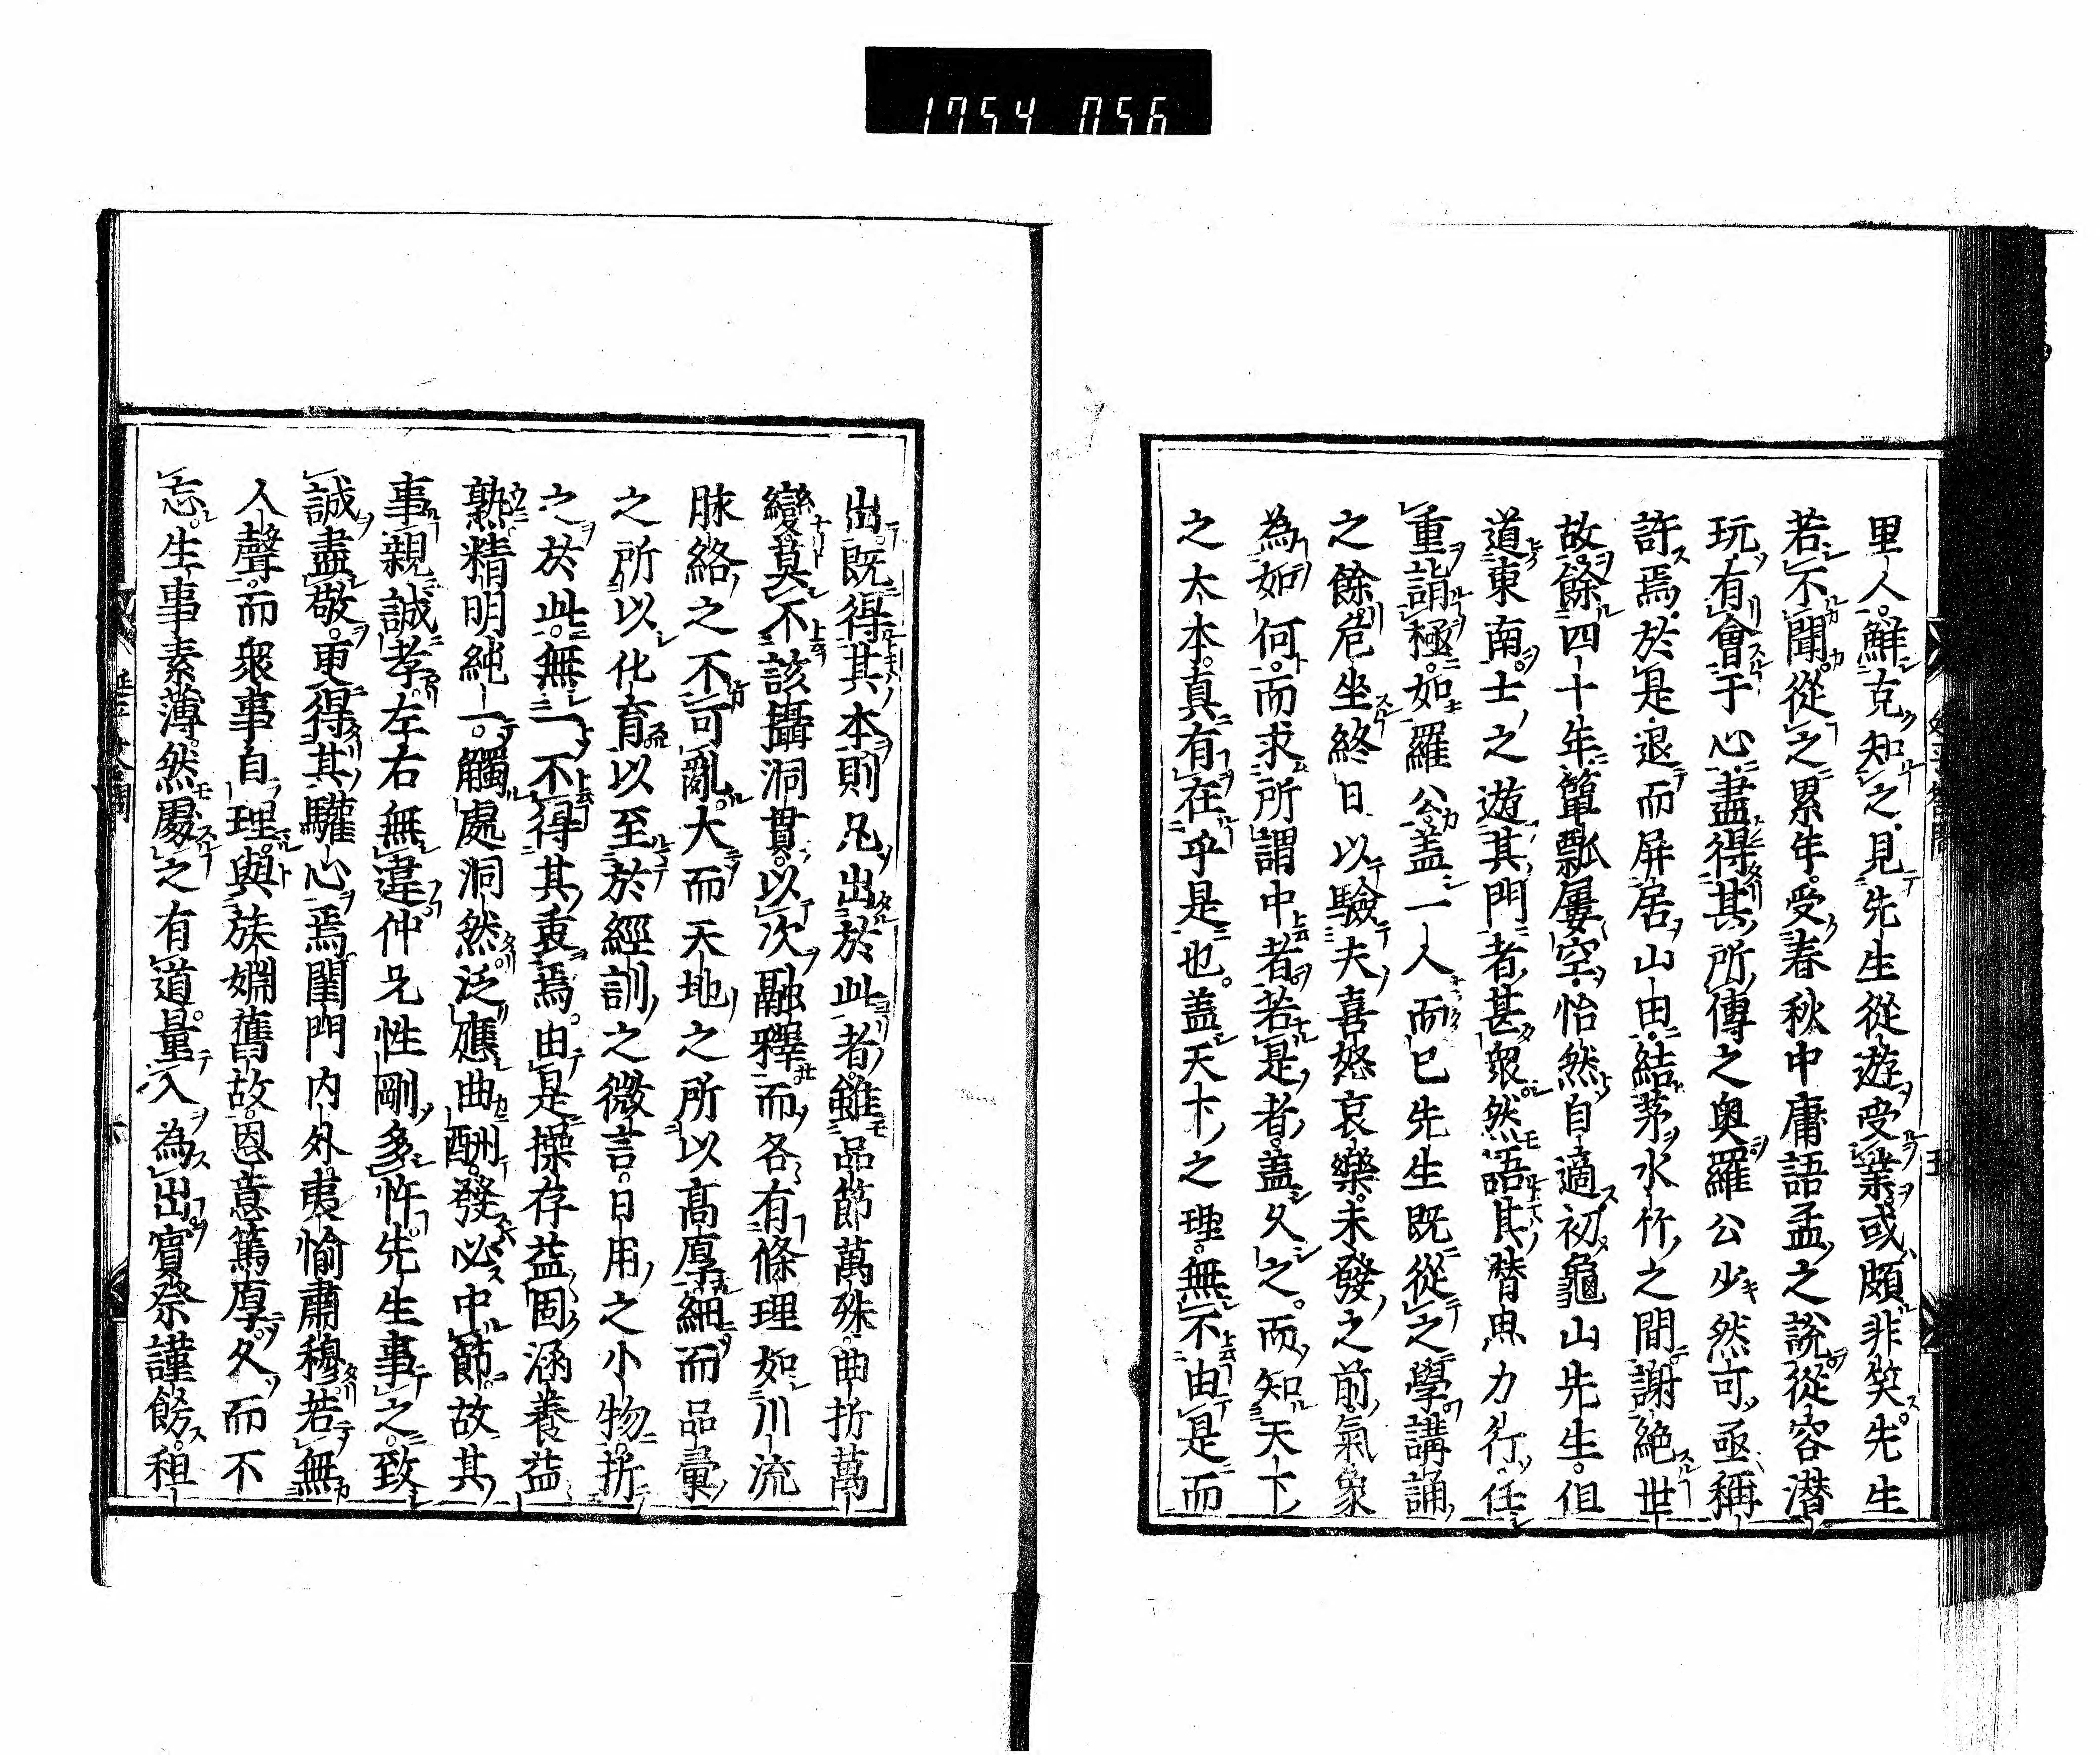 1754 056
里人鮮克知之見先生從遊受業或頗非笑先生
若不聞從之累年受春秋中庸語孟之説從容潜
玩有會于心盡得其所傳之奥羅公少然可亟稱
許焉於是退而屏居山田結茅水竹之間謝絶世
故餘四十年簞瓢屢空怡然自適初龜山先生但
道東南士之遊其門者甚衆然語其潜思力行任
重詣極如羅公蓋一人而已先生既從之學講誦
之餘危坐終日以驗夫喜怒哀樂未發之前氣象
為如何而求所謂中者若是者蓋久之而知天下
之大本真有在乎是也蓋天下之理無不由是而
出既得其本則凡出於此者雖品節萬殊曲折萬
變莫不該攝洞貫以次融釋而各有條理如川流
脉絡之不可亂大而天地之所以髙厚細而品彙
之所以化育以至於經訓之微言日用之小物折
之於此無一不得其衷焉由是操存益固涵養益
熟精明純一觸處洞然泛應曲酬發必中節故其
事親誠孝左右無違仲兄性剛多忤先生事之致
誠盡敬更得其驩心焉閨門内外夷愉肅穆若無
人聲而衆事自理與族婣舊故恩意篤厚久而不
忘生事素薄然處之有道量入為出賓祭謹飭租